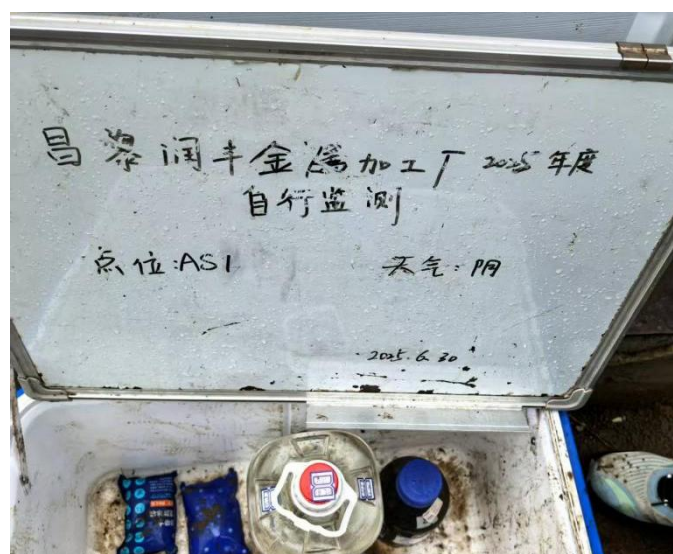 昌黎润丰金属加工厂 2025年度
自行监测
点位:AS1 天气:阴
2025.6.30